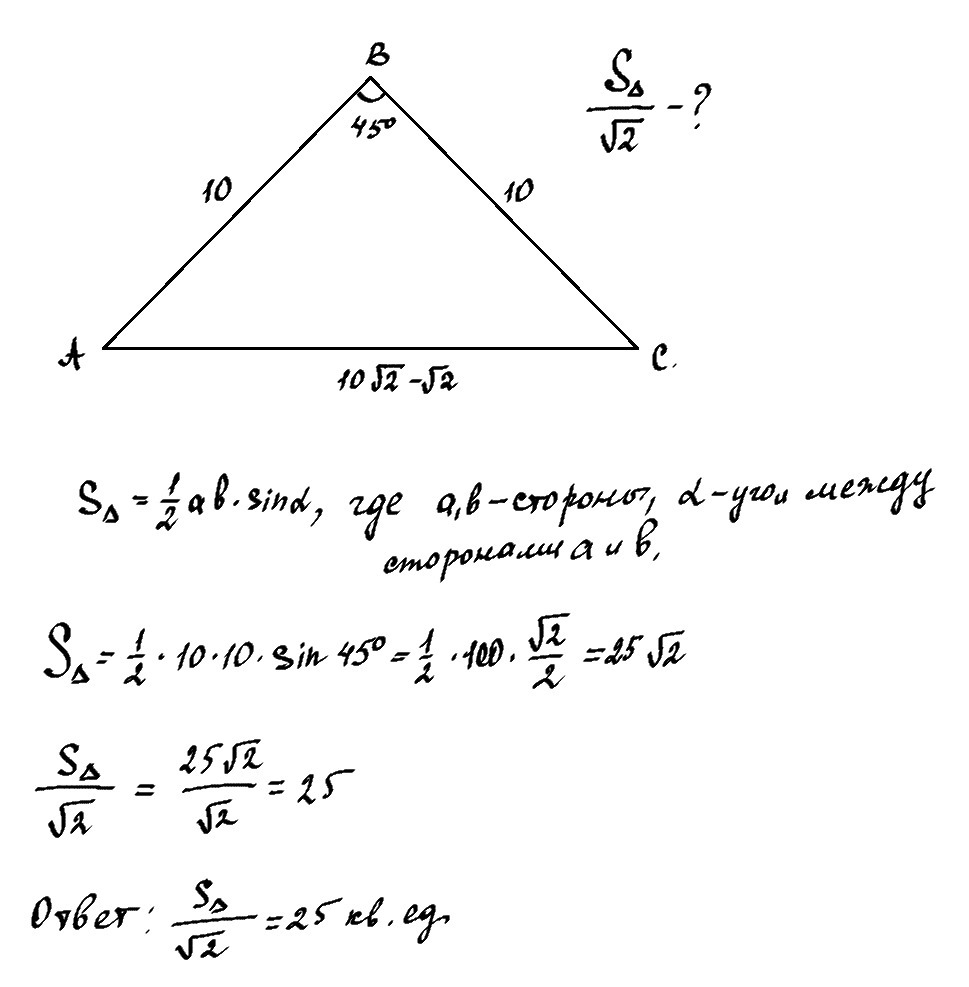 B
45°
S△/√2 - ?
10
10
A
C.
10√2-√2
S△ = 1/2 ab·sinα, где a,b-стороны, α-угол между
сторонами a и b.
S△ = 1/2 · 10·10· sin 45° = 1/2 ·100· √2/2 = 25√2
S△/√2 = 25√2/√2 = 25
Ответ: S△/√2 = 25 кв. ед.